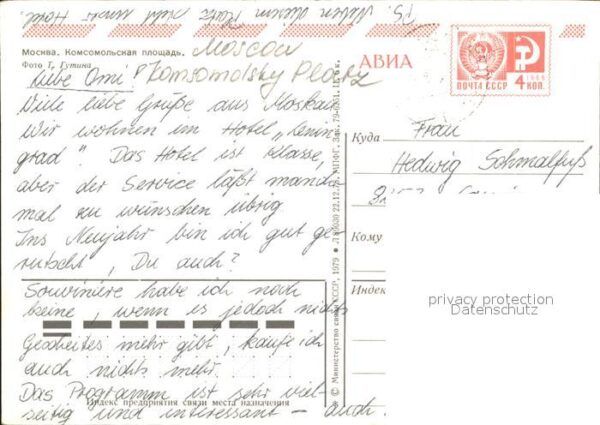 Москва. Комсомольская площадь. Moscow
Фото Т. Гутина Komsomolsky Plostz
Liebe Omi!
Viele liebe Grüße aus Moskau
Wir wohnen im Hotel „Lenin-
grad". Das Hotel ist Klasse,
aber der Service läßt manch-
mal zu wünschen übrig
Ins Neujahr bin ich gut ge-
rutscht, Du auch?
Souviniere habe ich noch
keine, wenn es jedoch nichts
Gescheites mehr gibt, kaufe ich
auch nichts mehr.
Das Programm ist sehr viel-
seitig und interessant - auch
Индекс предприятия связи места назначения
PS.
Hotel
© Министерство связи СССР, 1979
АВИА
ПОЧТА СССР
4 КОП.
1966
Куда
Frau
Hedwig Schmalfuß
Кому
Индекс
privacy protection
Datenschutz